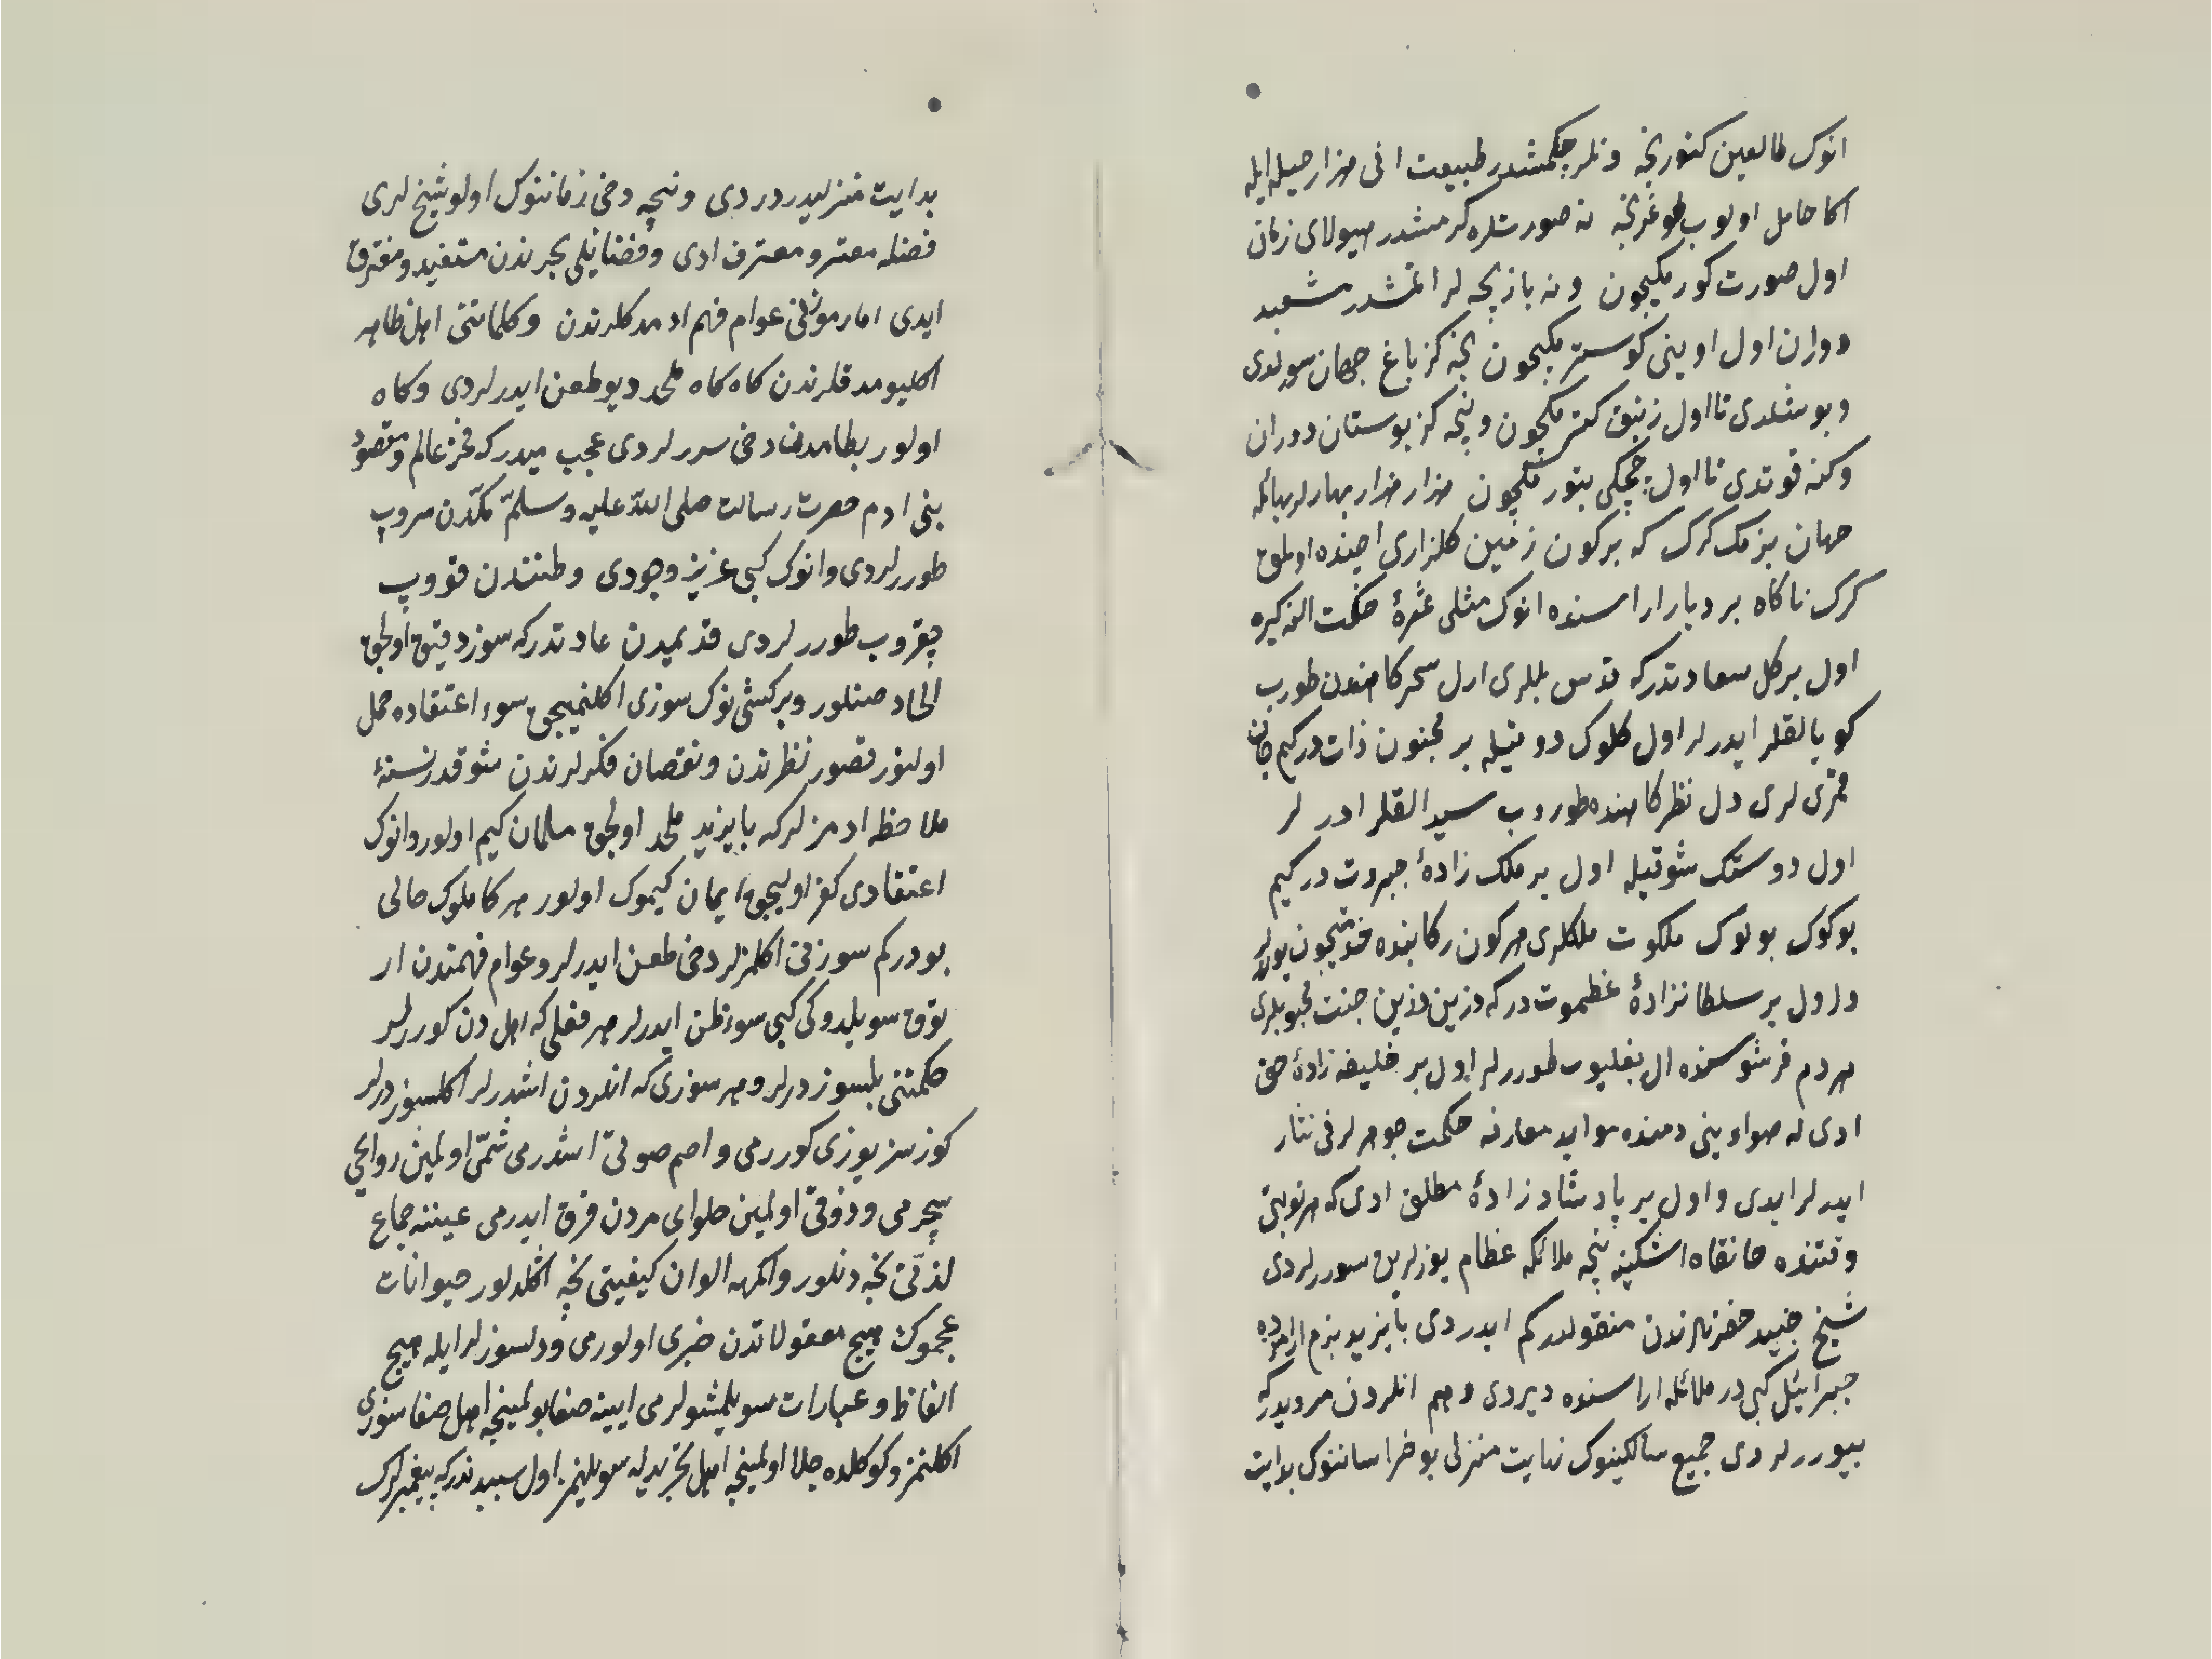 انوك طالعين كتورنجه ونلر چكمشدر طبيعت انی هزار حيله ايله
اكا حامل اولوب طوغرنجه نه صورتلره كرمشدر هيولای زمان
اول صورت كورمكيچون ونه بازيچه لر ايتمشدر مشعبد
دوران اول اوينی كوسترمكيچون نچه كز باغ جهان سورلدی
وبوشلدی تا اول زنبق كترمكيچون ونچه كز بوستان دوران
وكنه قوتدی تا اول چچكی بتورمكيچون هزار هزار بهارلر بهانله
جهان بزمك كرك كه بركون زمين كلزاری ايچنده اولمق
كرك ناكاه بر ديار اراسنده انوك مثلی ثمرۀ حكمت اله كيره
اول بر كل سعادتدر كه قدس بلبلری اول سحركاهندن طورب
كويا لقلر ايدرلر اول كلوك دوستيله بر مجنون ذات دركيم جان
قمری لری دل نظركاهنده طوروب سيد القلر ادر لر
اول دوستك شوقيله اول بر ملك زادۀ جبروت دركيم
بوكوك بولوك ملكوت ملكلری هركون ركابنده خدمتيچون يورلر
و اول بر سلطانزادۀ عظموت دركه وزين وزين جنت محبوبلری
هر دم قرشوسنده ال بغليوب طوررلر اول بر خليفه زادۀ حق
ادی له هواوينی دمنده موايد معارفه حكمت جوهرلرنی نثار
ايدرلر ايدی و اول بر پادشاه زادۀ مطلق ادی كه هر نوبتی
وقتنده خانقاه اشكينه نچه ملائكه عظام يوزلرين سوررلردی
شيخ جنيد حضرتلرندن منقولدركم ايدردی بايزيد بزم ارامزده
جبرائيل كبی در ملائكه اراسنده ديردی وهم انلردن مرويدركه
بيوررلردی جميع سالكينوك نهايت منزلی بو خراساننوك بدايت
بدايت منزليدر دردی ونچه دخی زماننوك اولو شيخ لری
فضله مقر و معترف ادی وفضائلی بحرندن مستفيد ومغترف
ايدی اما رموزنی عوام فهم ادمدكلرندن وكلماتنی اهل ظاهر
اكليومدقلرندن كاه كاه ملحد ديو طعن ايدرلردی وكاه
اولور بطامدن دخی سررلردی عجب ميدركه فخر عالم ومقصود
بنی ادم حضرت رسالت صلی الله عليه وسلم مكدن سروب
طوررلردی وانوك كبی عزيز وجودی وطنندن قووب
چقروب طوررلردی قديميدن عادتدركه سوز دقيق اولجق
الحاد صنلور وبر كشی نوك سوزی اكلنميجق سوء اعتقاده حمل
اولنور قصور نظرندن ونقصان فكرلرندن شوقدر نسنۀ
ملاحظه ادمزلركه بايزيد ملحد اولجق مسلمان كيم اولور وانوك
اعتقادی كفر اوليجق ايمان كيموك اولور هر كاملوك حالی
بودركم سوزنی اكلمزلر دخی طعن ايدرلر وعوام فهمندن ار
توق سويلدوكی كبی سوء ظن ايدرلر هر فعلی كه اهل دن كوررلر
حكمتنی بلسوز درلر وهر سوزی كه اندردن اشدرلر اكلسوز درلر
كوزسز يوزی كوررمی و اصم صوتی اشدرمی شمی اولمين روايحی
سچرمی و ذوقی اولمين حلوای مردن فرق ايدرمی عيننه جماع
لذتی نجه دنلور واكمهه الوان كيفيتی نچه اكلدلور حيوانات
عجموك هيچ معقولاتدن خبری اولورمی ودلسوزلر ايله هيچ
الفاظ وعبارات سويلمشولرمی ايينه صفا بولمينجه اهل صفا سوزی
اكلنمز وكوكلده جلا اولمينجه اهل تجريد له سويلنمز اول سببدندركه پيغمبرلرك